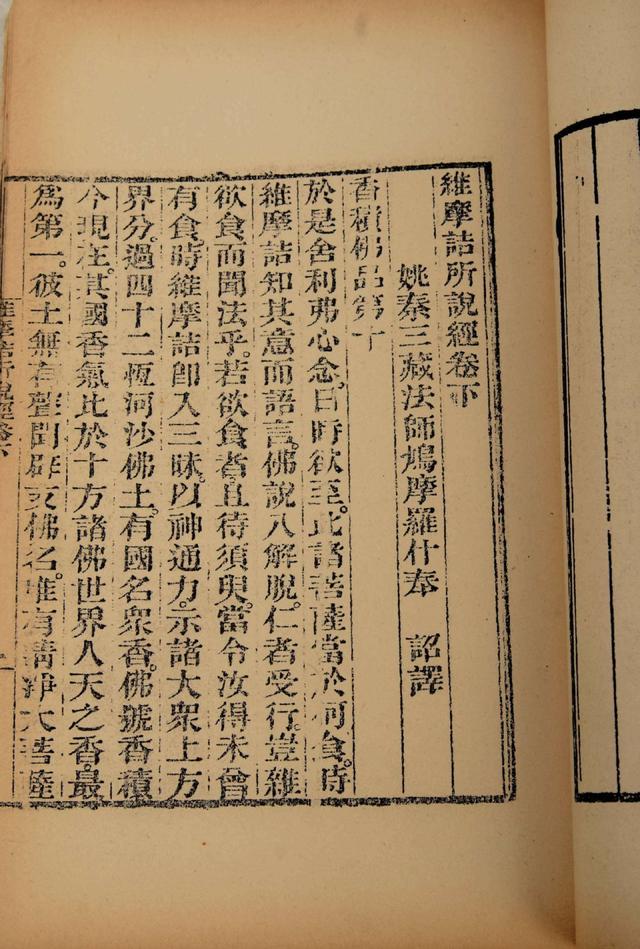 維摩詰所說經卷下
姚秦三藏法師鳩摩羅什奉 詔譯
香積佛品第十
於是舍利弗心念。日時欲至。此諸菩薩當於何食。時
維摩詰知其意而語言。佛說八解脫。仁者受行。豈雜
欲食而聞法乎。若欲食者。且待須臾。當令汝得未曾
有食。時維摩詰卽入三昧。以神通力。示諸大衆上方
界分。過四十二恆河沙佛土。有國名衆香。佛號香積
今現在。其國香氣比於十方諸佛世界人天之香。最
爲第一。彼土無有聲聞辟支佛名。唯有清淨大菩薩
維摩詰所說經卷下 一